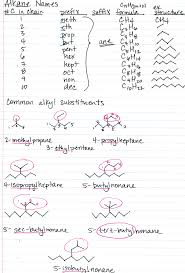 Alkane Names
# C in chain prefix suffix formula ex. structure
1 meth CH4 CH4
2 eth C2H6
3 prop C3H8
4 but ane C4H10
5 pent C5H12
6 hex C6H14
7 hept C7H16
8 oct C8H18
9 non C9H20
10 dec C10H22
Common alkyl substituents
2-methylpropane 4-propyloctane
3-ethylpentane
4-isopropylheptane 5-butylnonane
5-sec-butylnonane 5-tert-butylnonane
5-isobutylnonane